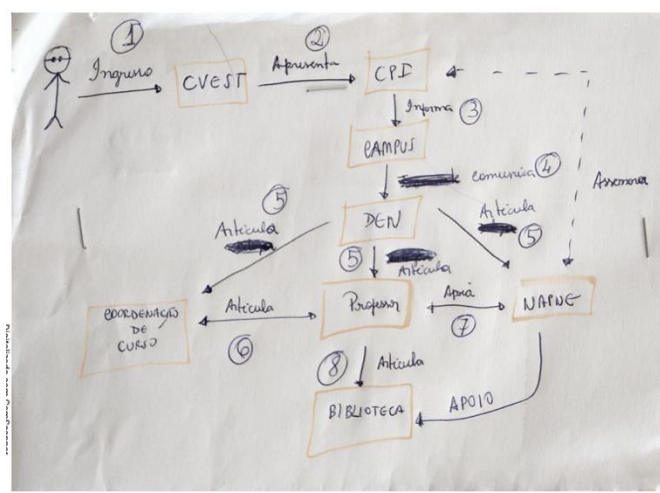 1
2
Ingresso
CVEST
Apresenta
CPI
Informa 3
CAMPUS
Comunica 4
Assessora
5
Articula
DEN
Articula
5
5
Articula
COORDENAÇÃO
DE
CURSO
Articula
6
Professor
Apoia
7
NAPNE
8
Articula
BIBLIOTECA
APOIO
Digitalizado com CamScanner